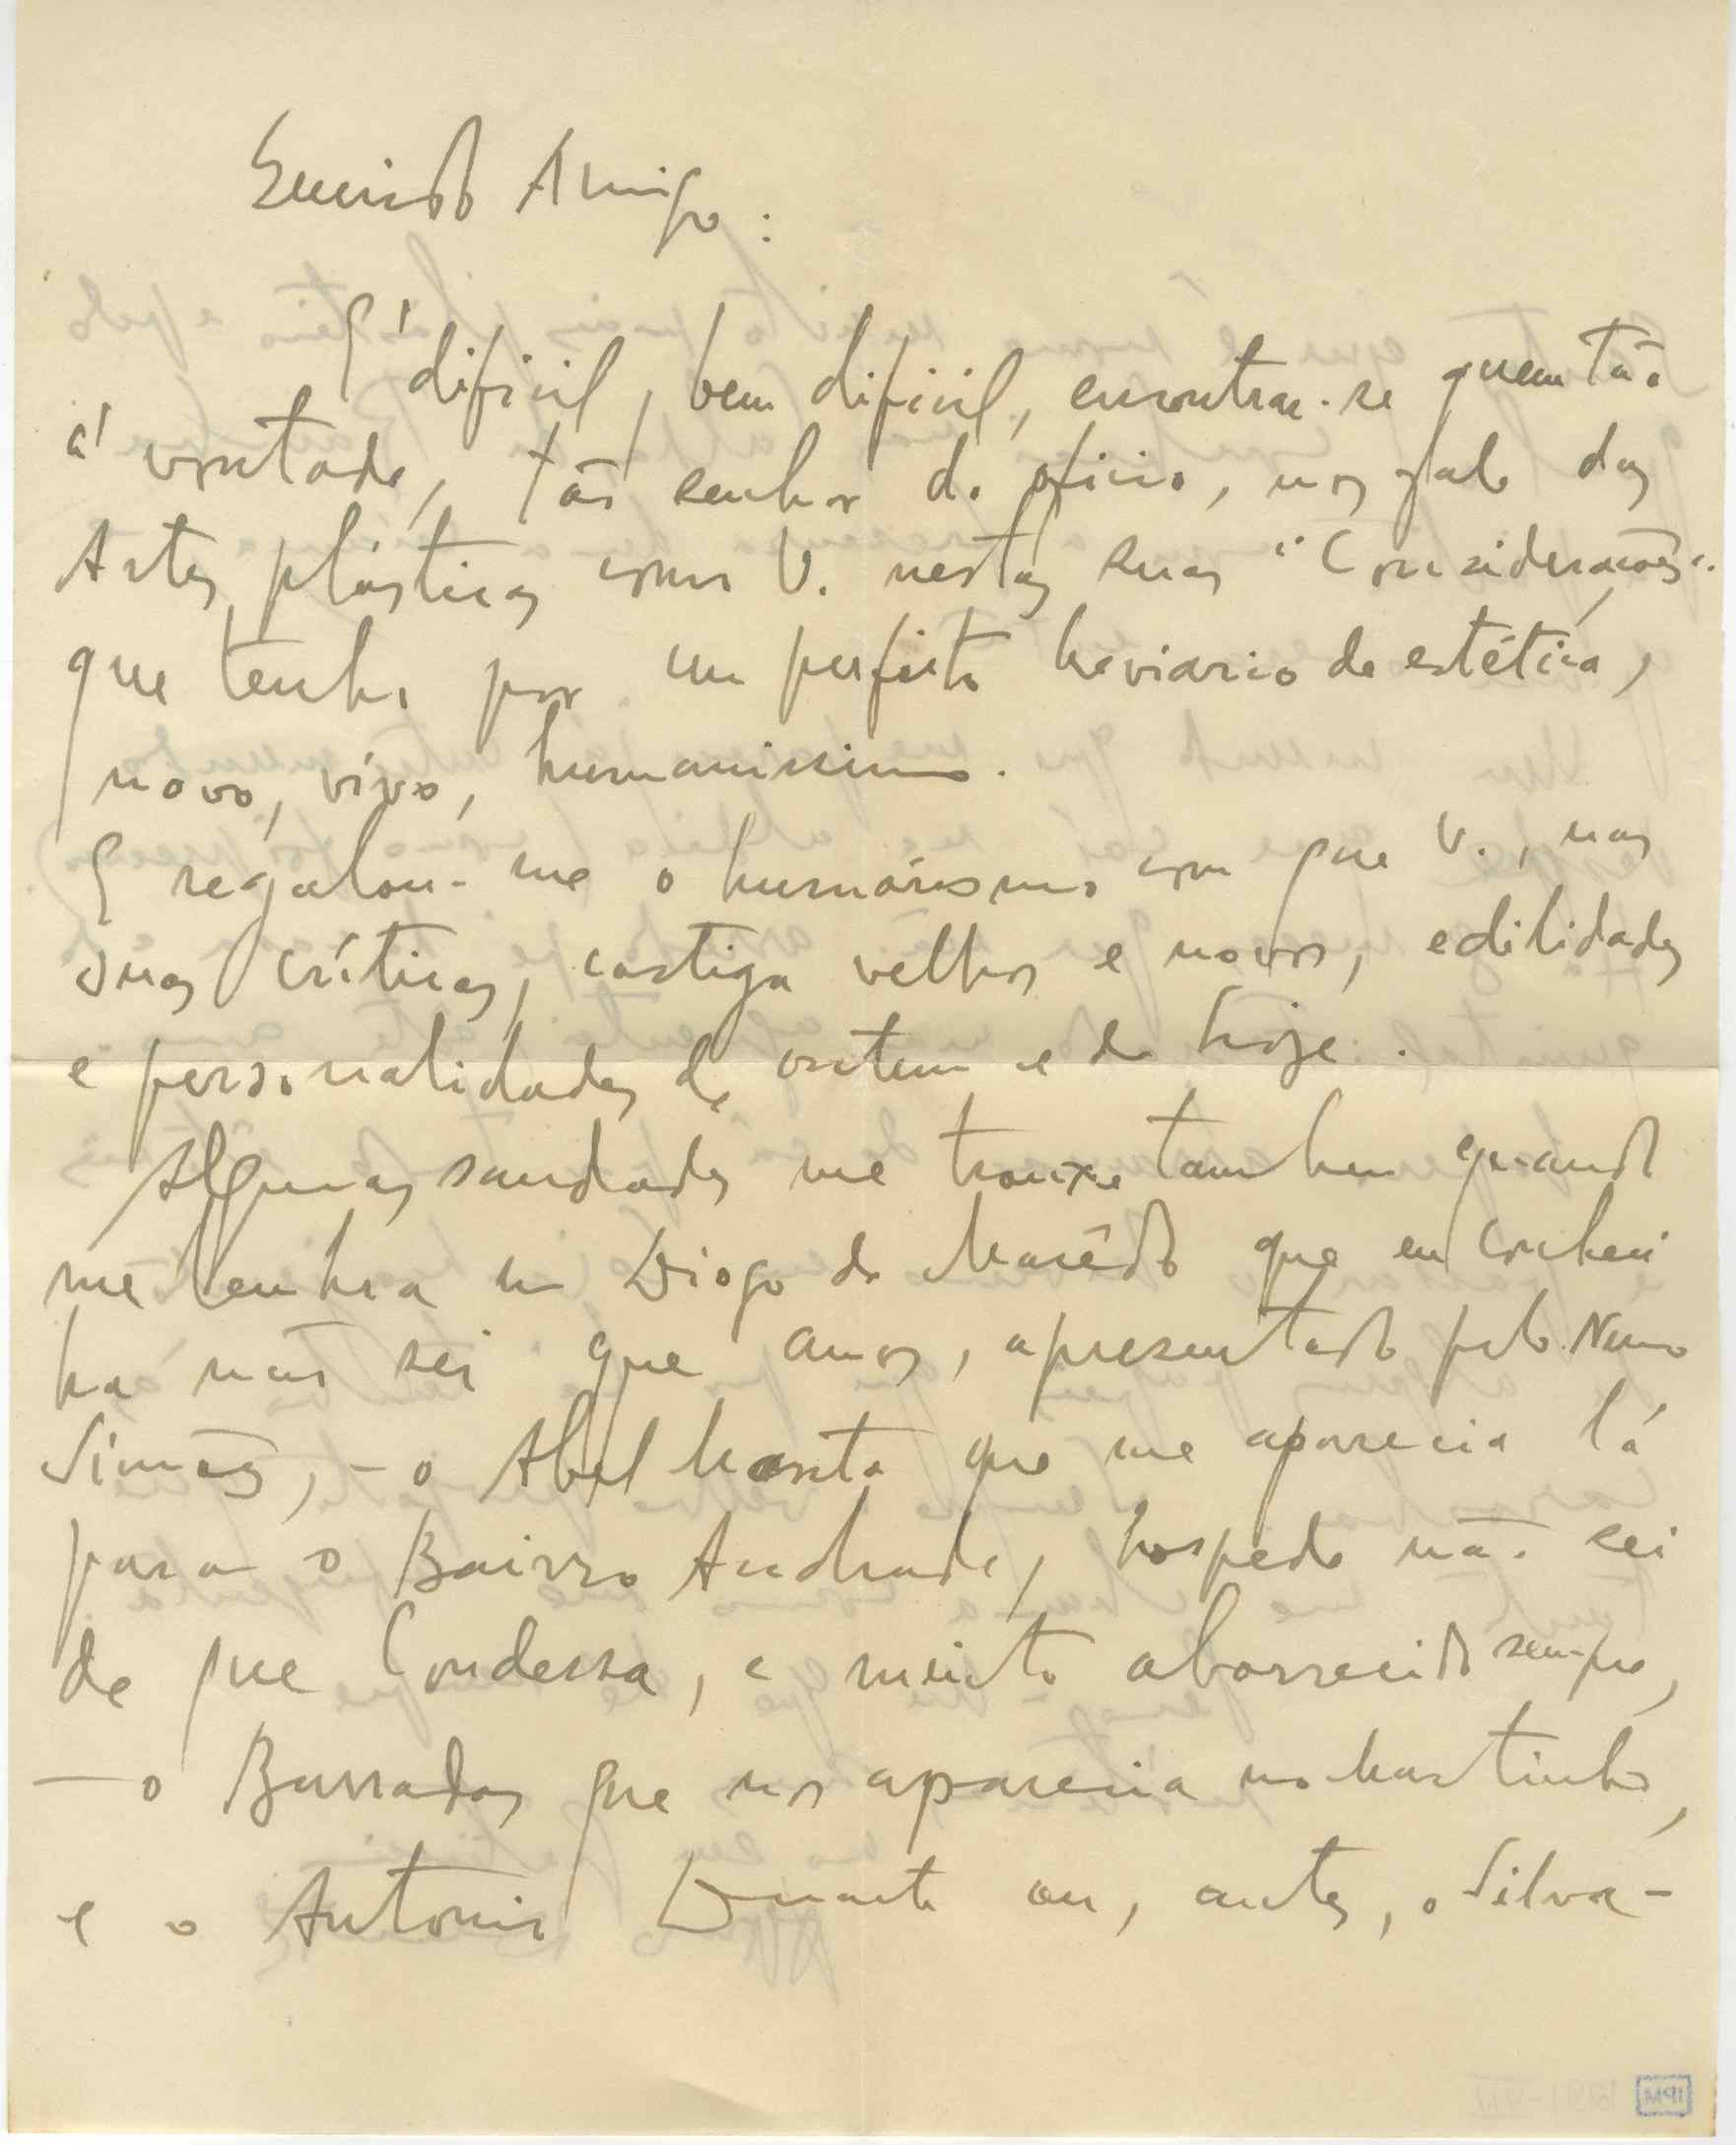 Querido Amigo:
É dificil, bem dificil, encontrar-se quem tão
á vontade, tão senhor do oficio, nos fale das
Artes plásticas como V. nestas suas "Considerações"
que tenho por um perfeito breviario de estética,
novo, vivo, humanissimo.
E regalou-me o humorismo com que V., nas
suas críticas, castiga velhos e novos, edilidades
e personalidades de ontem e de hoje.
Algumas saudades me trouxe tambem quando
me lembra um Diogo de Macêdo que eu conheci
ha não sei que anos, apresentado pelo Nuno
Simões, - o Abel Manta que me aparecia lá
para o Bairro Andrade, hospede não sei
de que Condessa, e muito aborrecido sempre,
- o Barradas que nos aparecia no Martinho,
e o Antonio Duarte ou, antes, o Silva-
IPM